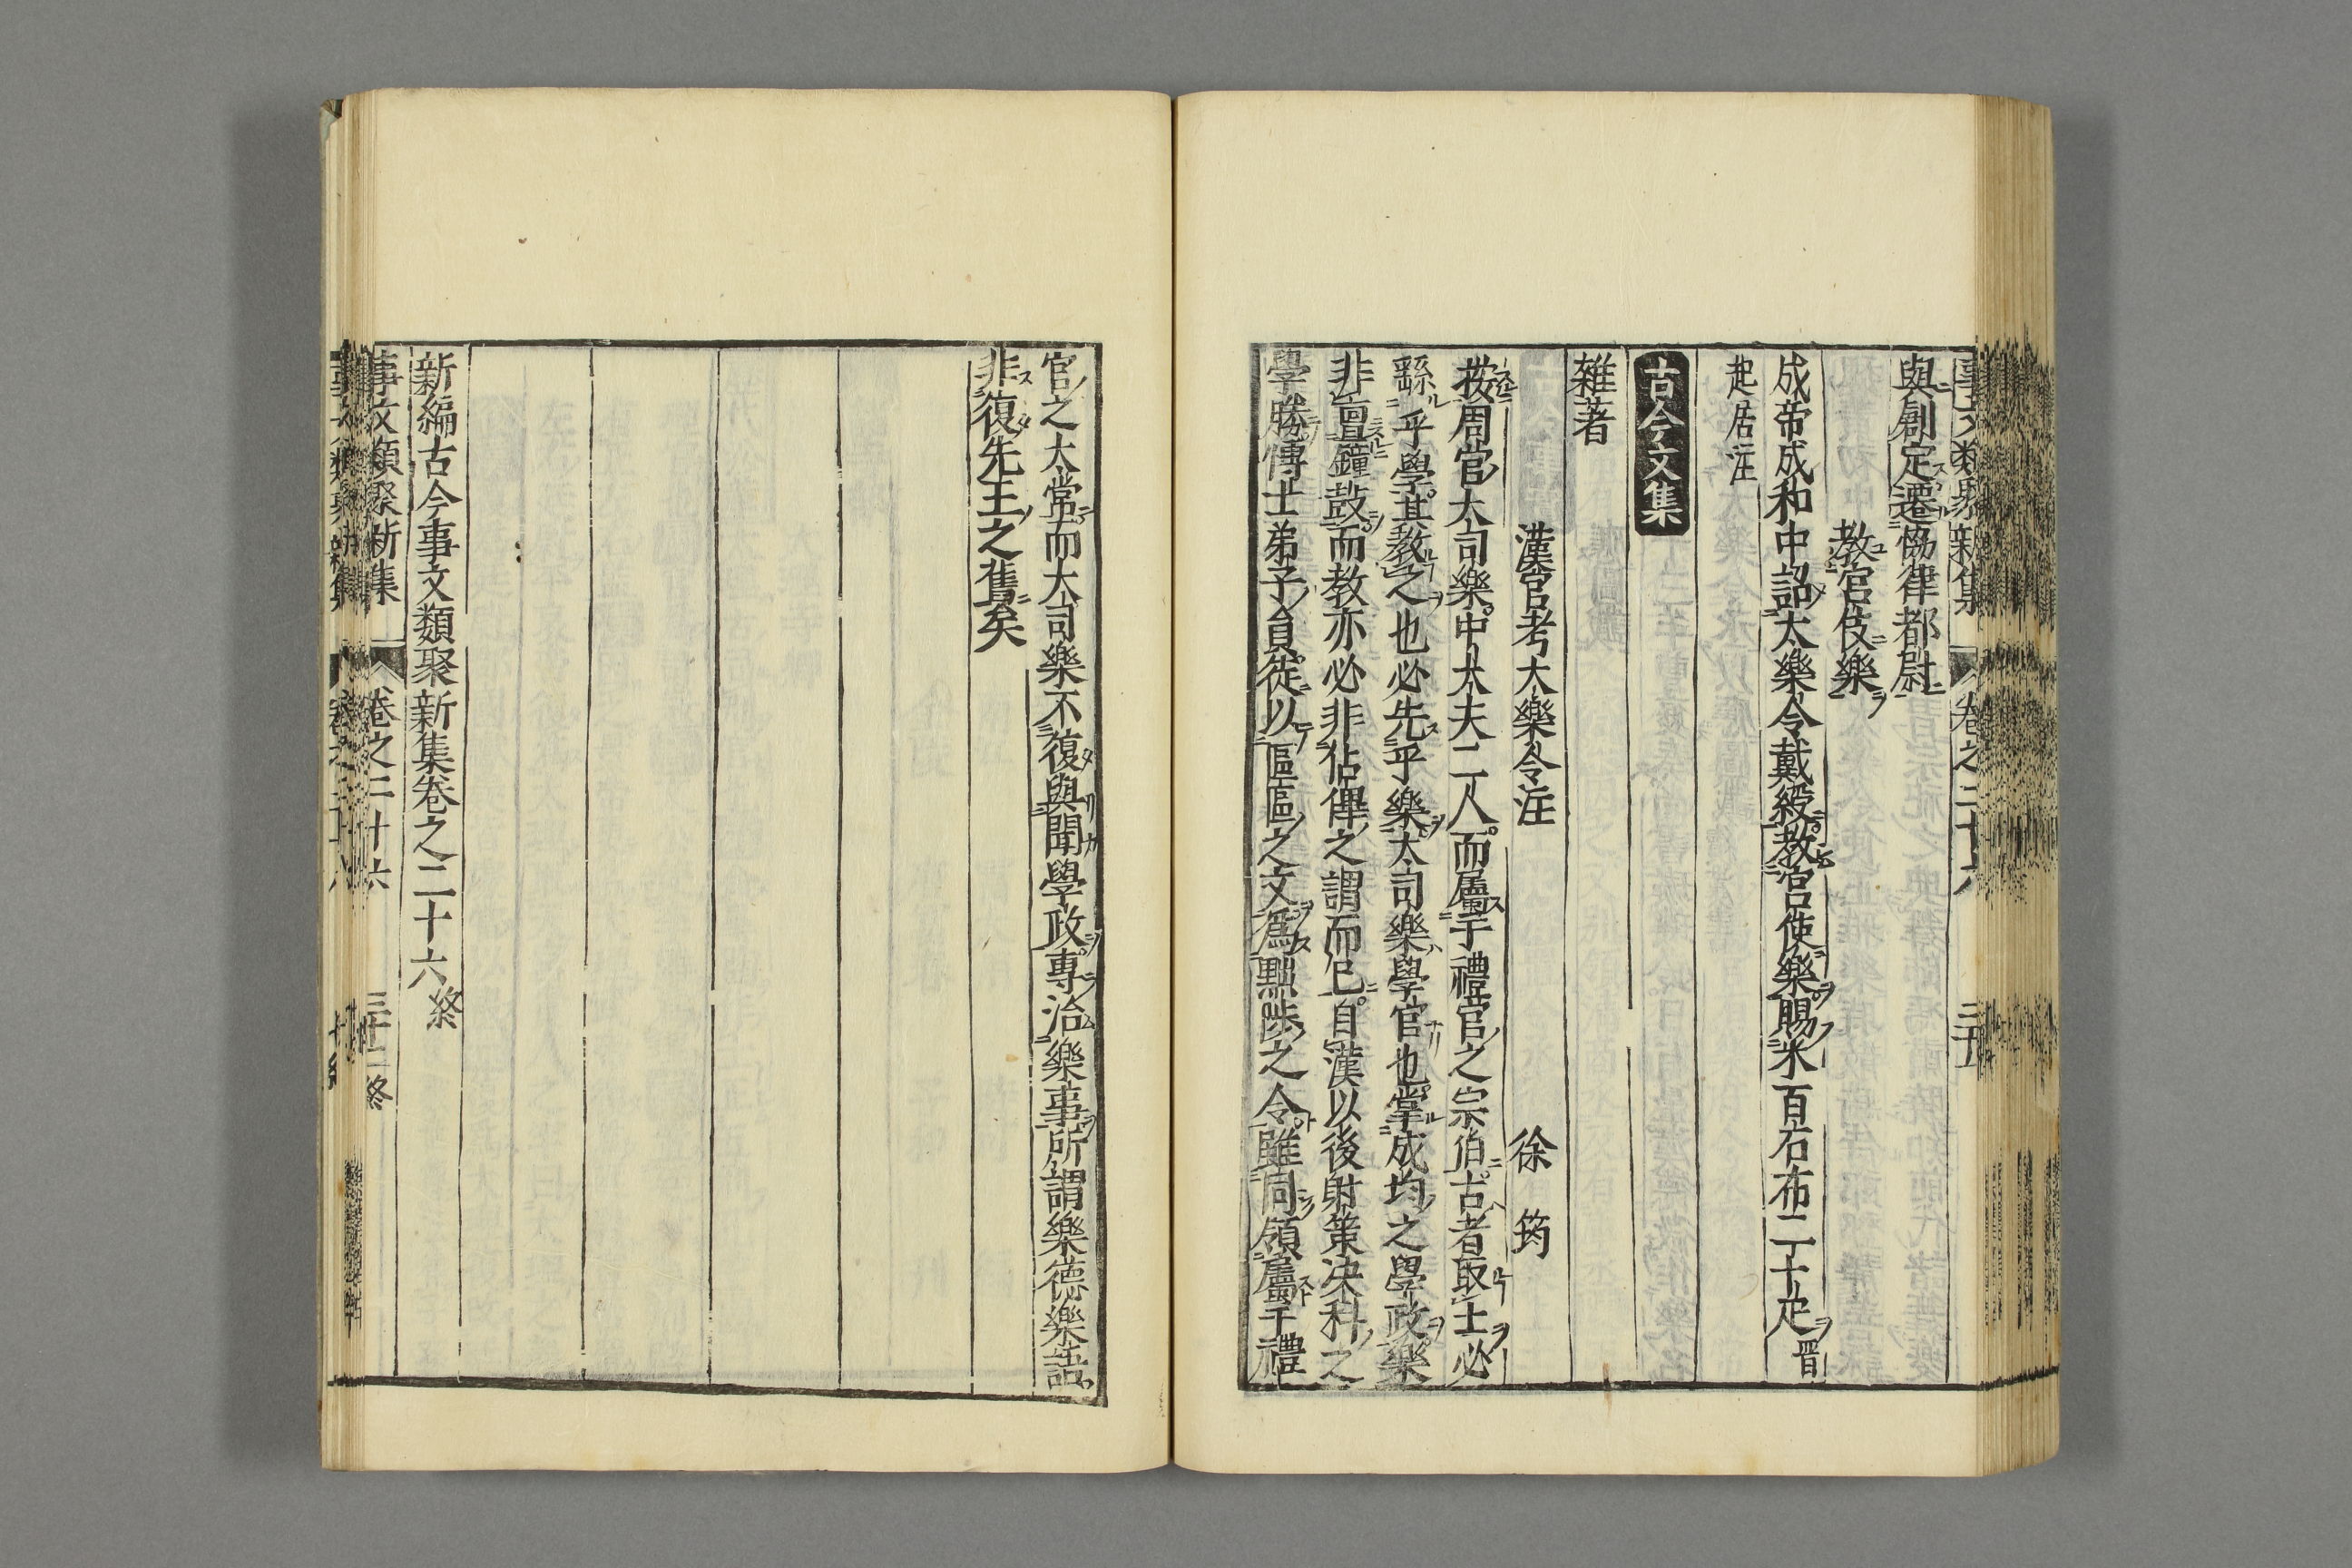 事文類聚新集 卷之二十六 三十五
與創定遷協律都尉
教宮伎樂
成帝成和中詔太樂令戴綬教宮使樂賜米百石布二十疋晋
起居注
古今文集
雜著
漢官考大樂令注 徐筠
按周官大司樂中大夫二人而屬于禮官之宗伯古者取士必
繇乎學其教之也必先乎樂大司樂學官也掌成均之學政樂
非亶鐘鼓而教亦必非佔俾之謂而已自漢以後射策決科之
學勝博士弟子員徒以區區之文爲黜陟之令雖同領屬于禮
官之大常而大司樂不復與聞學政專治樂事所謂樂德樂語
非復先王之舊矣
新編古今事文類聚新集卷之二十六終
事文類聚新集 卷之二十六 三十二終